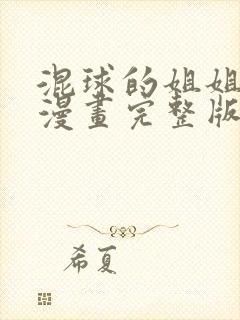 混球的姐姐
漫畫完整版
希夏